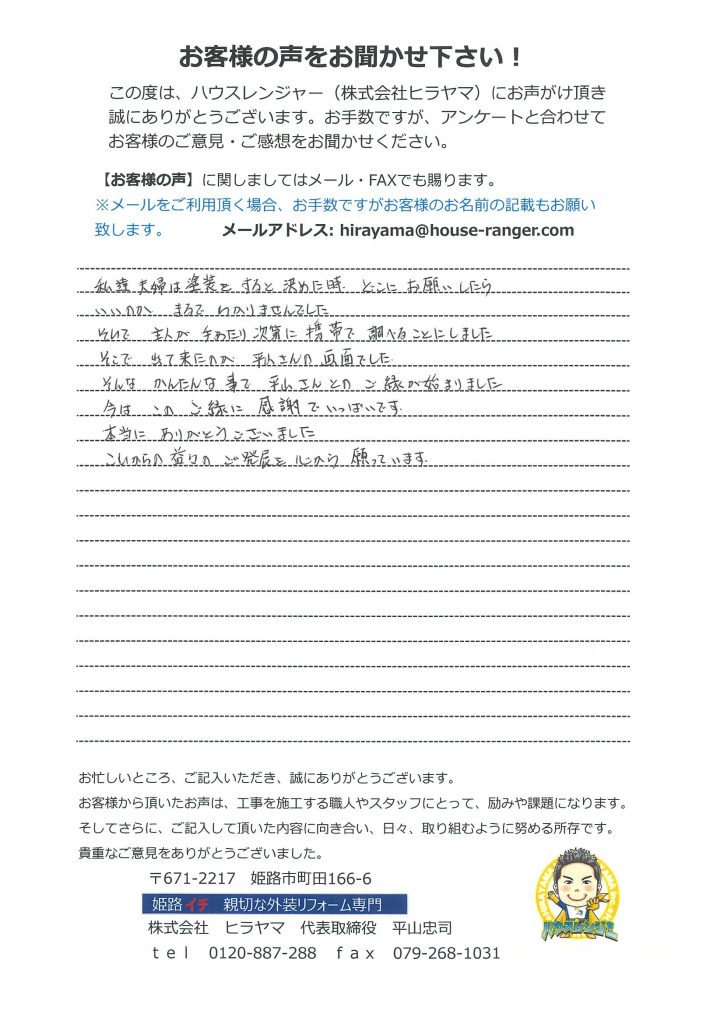 お客様の声をお聞かせ下さい！
この度は、ハウスレンジャー（株式会社ヒラヤマ）にお声がけ頂き
誠にありがとうございます。お手数ですが、アンケートと合わせて
お客様のご意見・ご感想をお聞かせください。
【お客様の声】に関しましてはメール・FAXでも賜ります。
※メールをご利用頂く場合、お手数ですがお客様のお名前の記載もお願い
致します。　メールアドレス: hirayama@house-ranger.com
私達夫婦は塗装をすると決めた時 どこにお願いしたら
いいのか まるでわかりませんでした
そして 主人が手あたり次第に携帯で調べることにしました
そこで 出て来たのが 平山さんの画面でした
そんな かんたんな事で 平山さんとのご縁が始まりました
今は この ご縁に 感謝でいっぱいです
本当に ありがとうございました
これからの益々の ご発展を心から 願っています
お忙しいところ、ご記入いただき、誠にありがとうございます。
お客様から頂いたお声は、工事を施工する職人やスタッフにとって、励みや課題になります。
そしてさらに、ご記入して頂いた内容に向き合い、日々、取り組むように努める所存です。
貴重なご意見をありがとうございました。
〒671-2217　姫路市町田166-6
姫路イチ　親切な外装リフォーム専門
株式会社　ヒラヤマ　代表取締役　平山忠司
ｔｅｌ　0120-887-288　ｆａｘ　079-268-1031
ハウスレンジャー